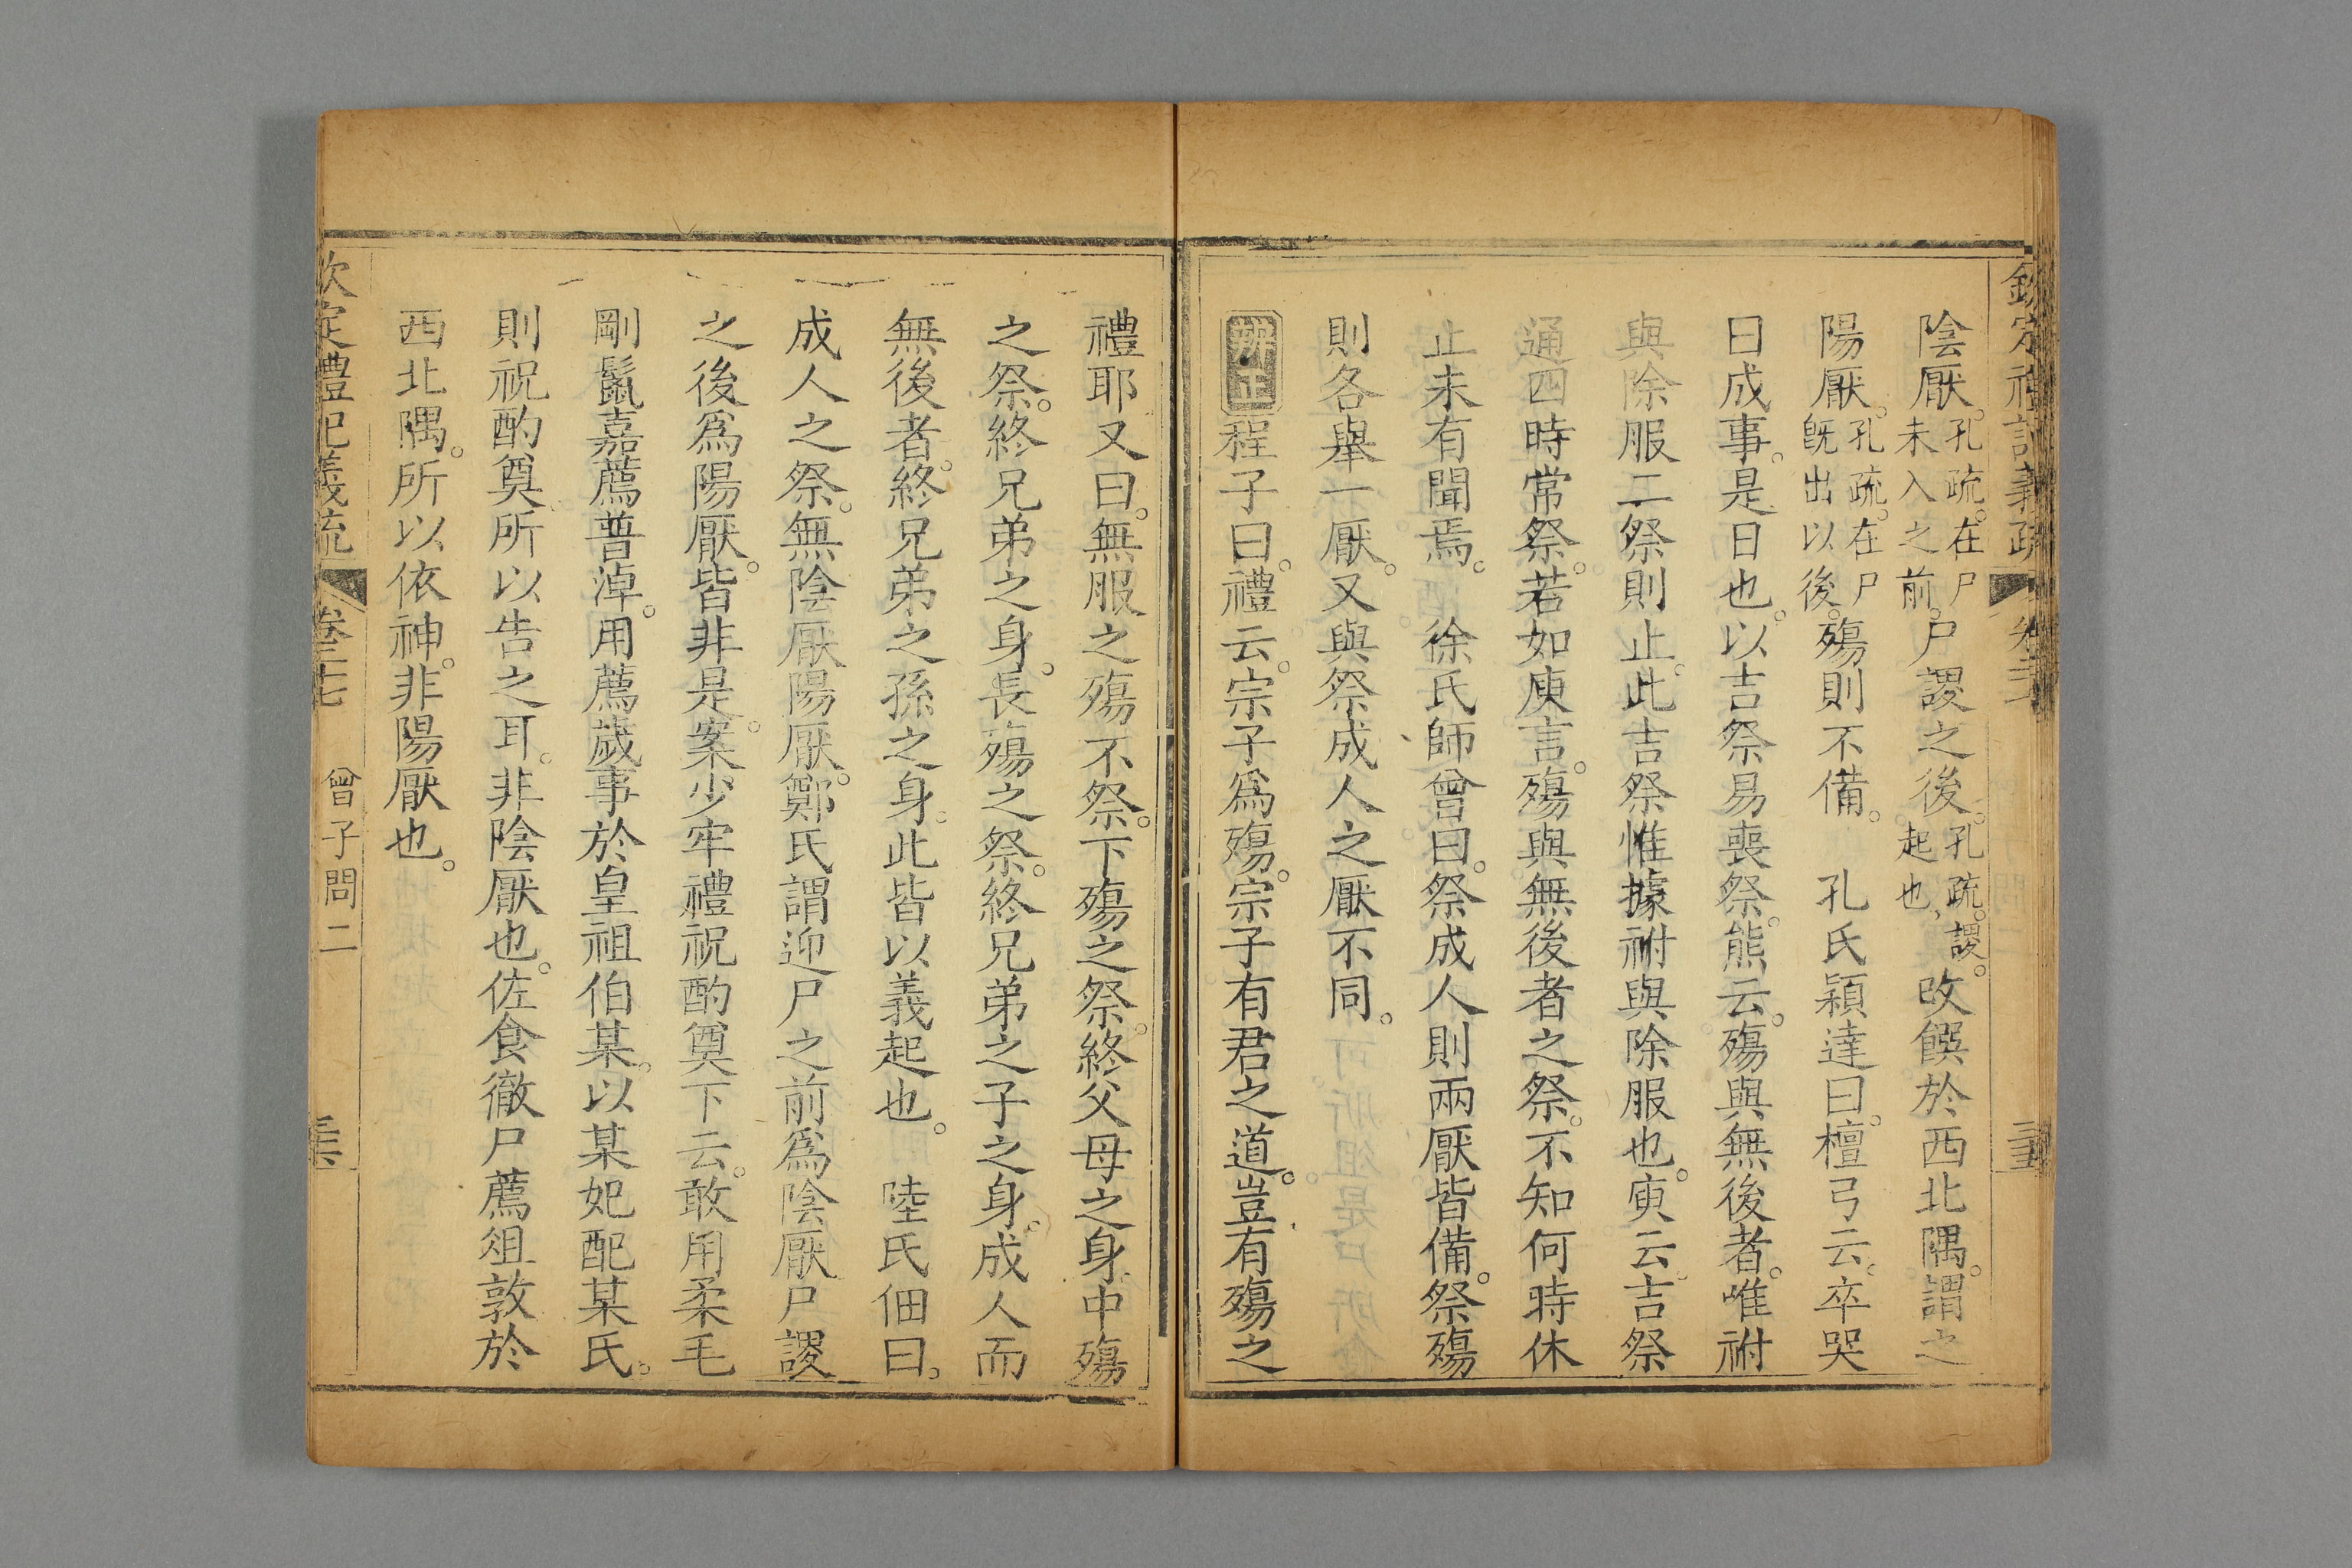 陰厭。孔疏。在尸未入之前。尸謖之後。孔疏。謖。起也。改饌於西北隅。謂之
陽厭。孔疏。在尸旣出以後。殤則不備。　孔氏穎達曰。檀弓云。卒哭
曰成事。是日也。以吉祭易喪祭。熊云。殤與無後者。唯祔
與除服二祭則止。此吉祭惟據祔與除服也。庾云。吉祭
通四時常祭。若如庾言。殤與無後者之祭。不知何時休
止未有聞焉。　徐氏師曾曰。祭成人則兩厭皆備。祭殤
則各舉一厭。又與祭成人之厭不同。
辨正程子曰。禮云。宗子爲殤。宗子有君之道。豈有殤之
禮耶又曰。無服之殤不祭。下殤之祭。終父母之身。中殤
之祭。終兄弟之身。長殤之祭。終兄弟之子之身。成人而
無後者。終兄弟之孫之身。此皆以義起也。　陸氏佃曰。
成人之祭。無陰厭陽厭。鄭氏謂迎尸之前爲陰厭尸謖
之後爲陽厭。皆非是。案。少牢禮祝酌奠下云。敢用柔毛
剛鬣嘉薦普淖。用薦歲事於皇祖伯某。以某妃配某氏。
則祝酌奠。所以告之耳。非陰厭也。佐食徹尸薦俎敦於
西北隅。所以依神。非陽厭也。
欽定禮記義疏　卷二十七　曾子問二